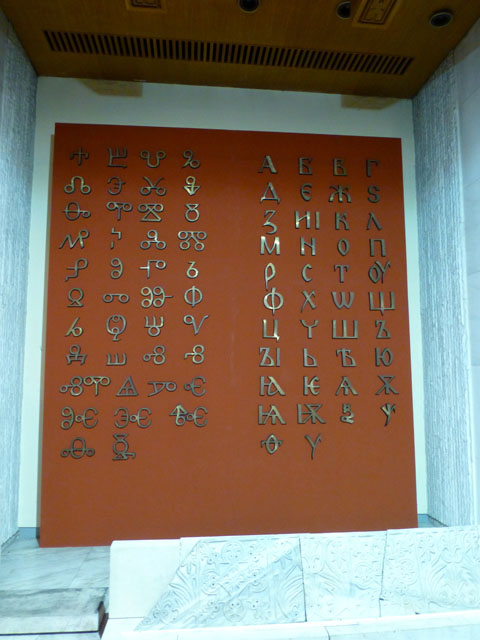 Ⰰ Ⰱ Ⰲ Ⰳ
Ⰴ Ⰵ Ⰶ Ⰷ
Ⰸ Ⰺ Ⰹ Ⰻ
Ⰼ Ⰽ Ⰾ Ⰿ
Ⱀ Ⱁ Ⱂ Ⱃ
Ⱄ Ⱅ Ⱆ Ⱇ
Ⱈ Ⱉ Ⱋ Ⱌ
Ⱍ Ⱎ Ⱏ Ⱐ
ⰟⰊ Ⱑ Ⱓ Ⱕ
Ⱘ Ⱔ Ⱙ
Ⱚ Ⱛ
А Б В Г
Д Є Ж Ѕ
З ИІ К Л
М Н О П
Р С Т ОУ
Ф Х Ѡ Щ
Ц Ч Ш Ъ
ЪІ Ь Ѣ Ю
Ꙗ Ѥ Ѧ Ѫ
Ѩ Ѭ Ѯ Ѱ
Ѳ Ѵ